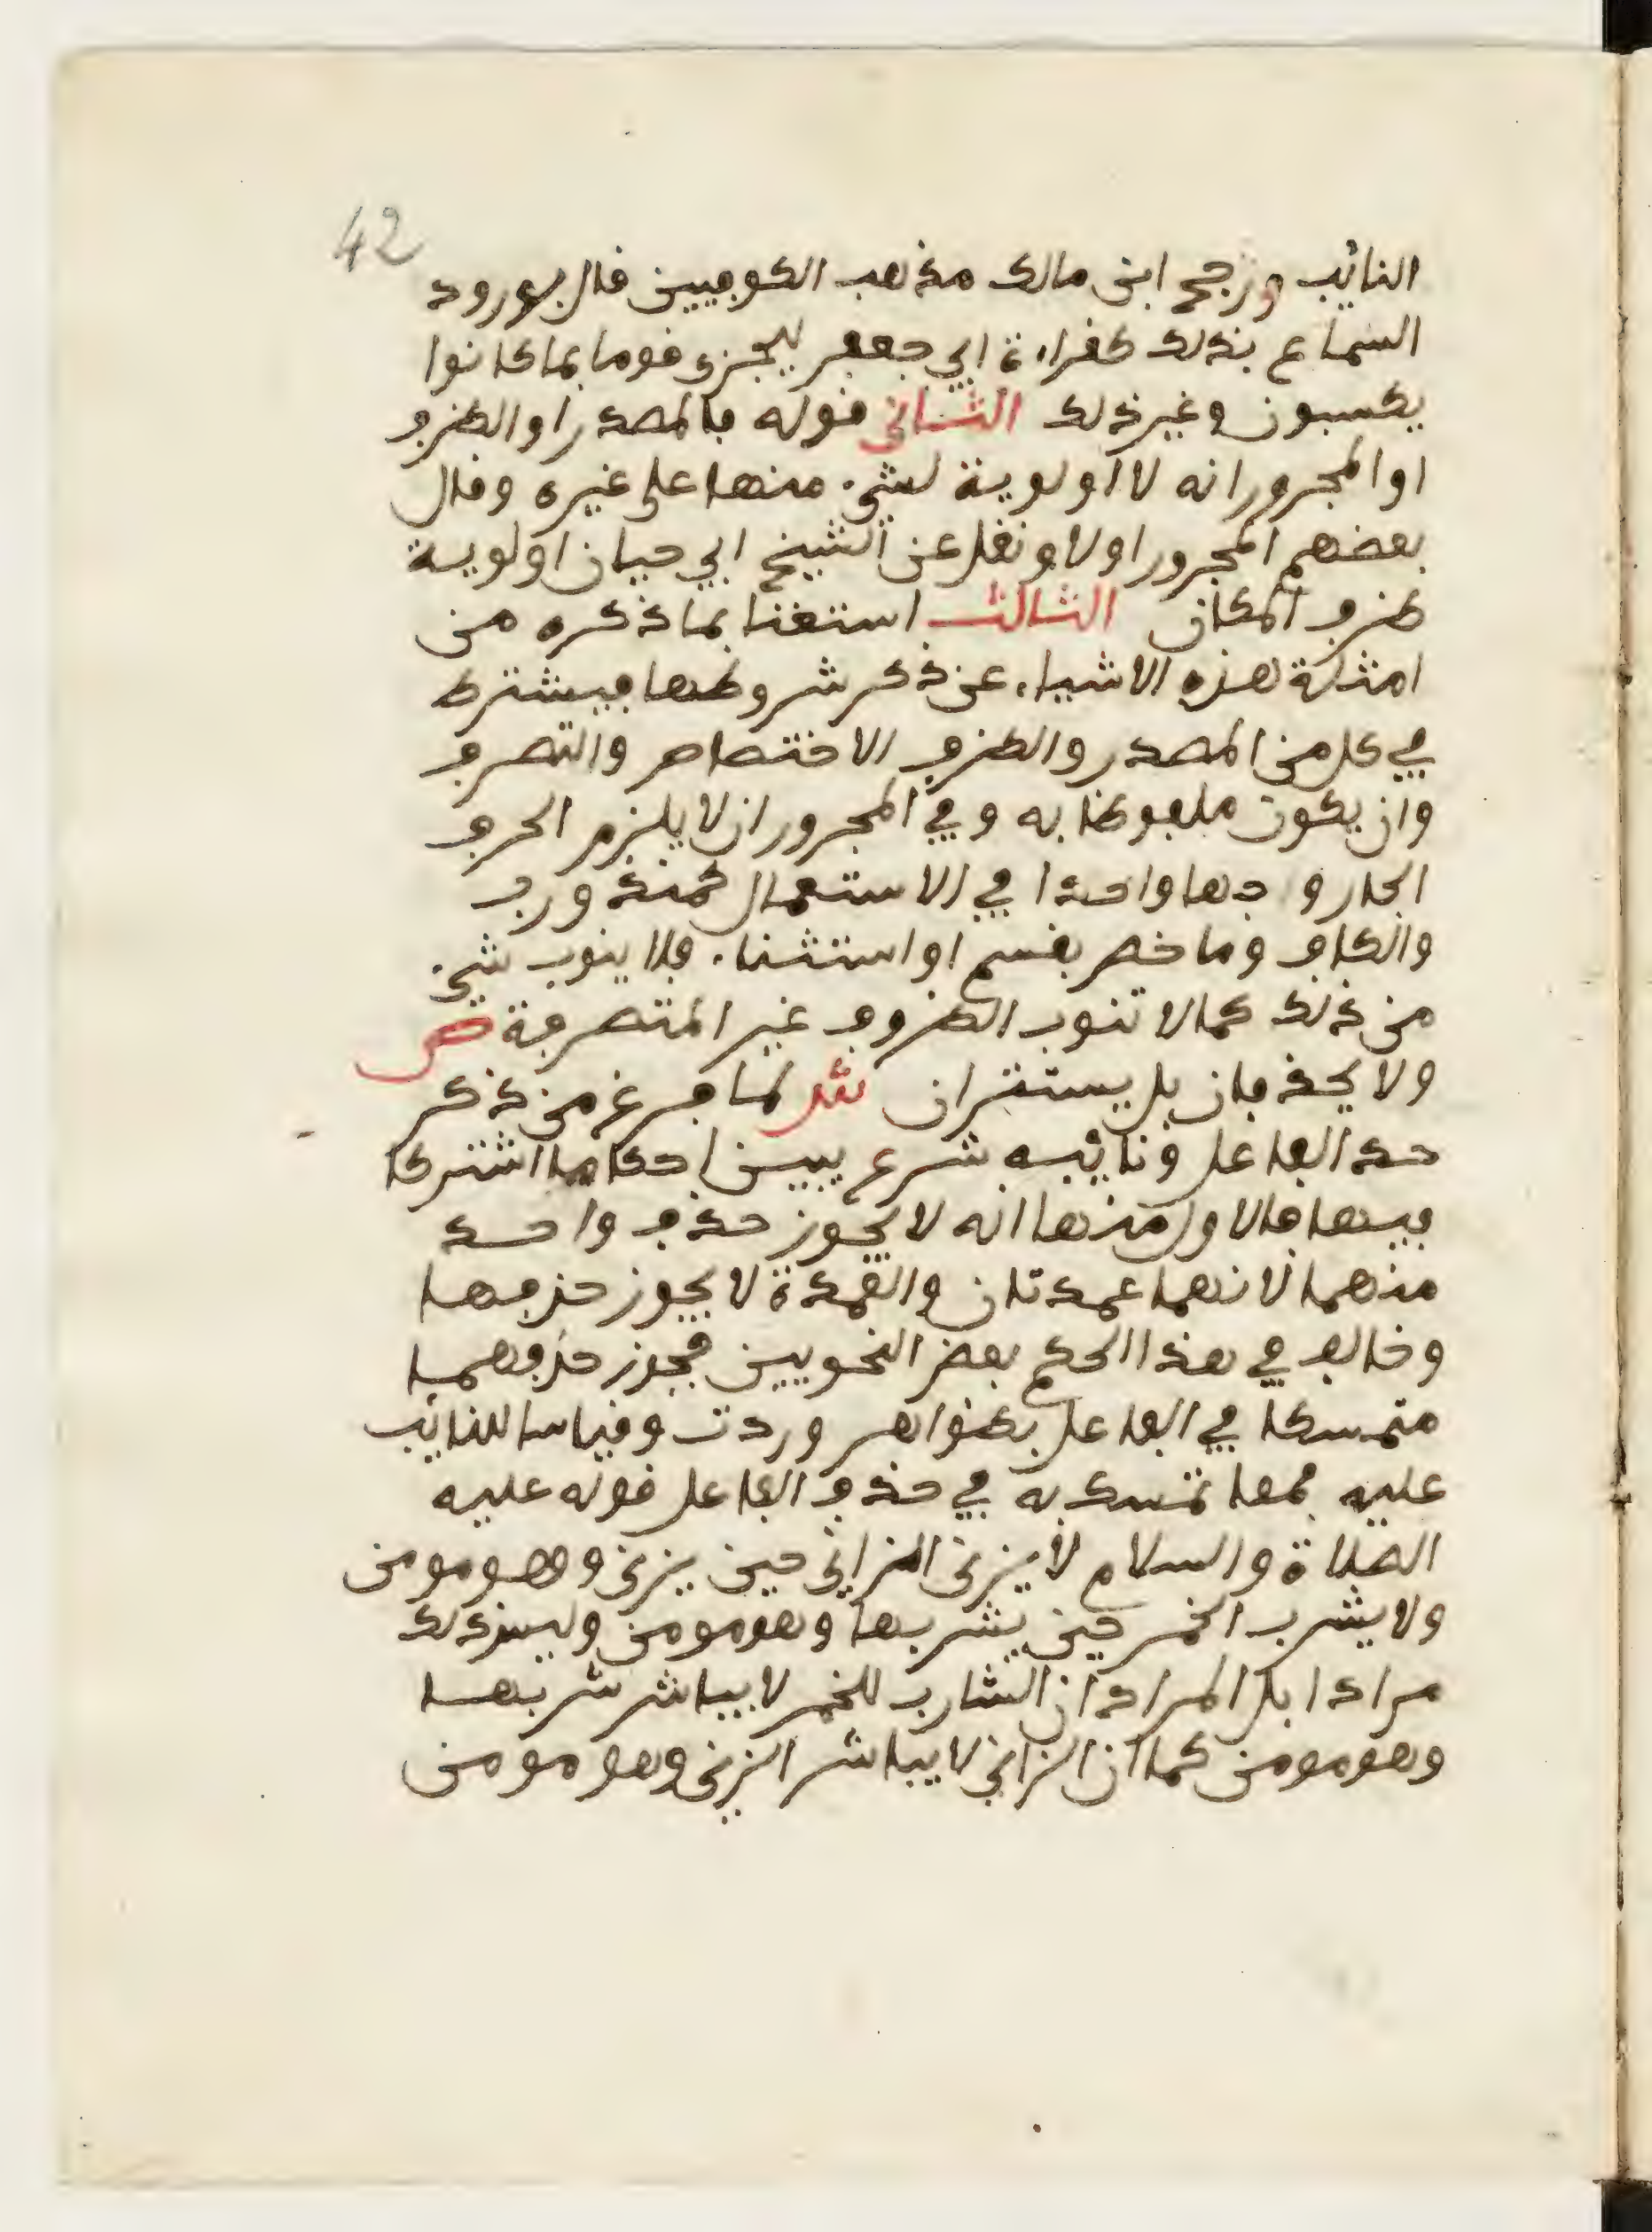 42
النائب ورجح ابن مالك مذهب الكوفيين قال لورود
السماع بذلك كقراءة ابي جعفر ليجزى قوما بما كانوا
يكسبون وغير ذلك الثاني قوله فالمصدر او الظرف
او المجرور انه لا اولوية لشيء منها على غيره وقال
بعضهم المجرور اولا ونقل عن الشيخ ابي حيان اولوية
ظرف المكان الثالث استغنا بما ذكره من
امثلة هذه الاشياء عن ذكر شروطها فيشترط
في كل من المصدر والظرف الاختصاص والتصرف
وان يكون ملفوظا به وفي المجرور ان لا يلزم الحرف
الجار وجها واحدا في الاستعمال كمنذ ورب
والكاف وما خص بقسم او استثناء فلا ينوب شيء
من ذلك كما لا تنوب الظروف غير المتصرفة ص
ولا يحذفان بل يستتران ش لما فرغ من ذكر
حد الفاعل ونائبه شرع يبين احكاما اشتركا
فيها فالاول منها انه لا يجوز حذف واحد
منهما لانهما عمدتان والعمدة لا يجوز حذفها
وخالف في هذا الحكم بعض النحويين فجوز حذفهما
متمسكا في الفاعل بظواهر وردت وقياسا للنائب
عليه فمما تمسك به في حذف الفاعل قوله عليه
الصلاة والسلام لا يزنى الزاني حين يزنى وهو مومن
ولا يشرب الخمر حين يشربها وهو مومن وليس ذلك
مرادا بل المراد ان الشارب للخمر لا يباشر شربها
وهو مومن كما ان الزاني لا يباشر الزنى وهو مومن